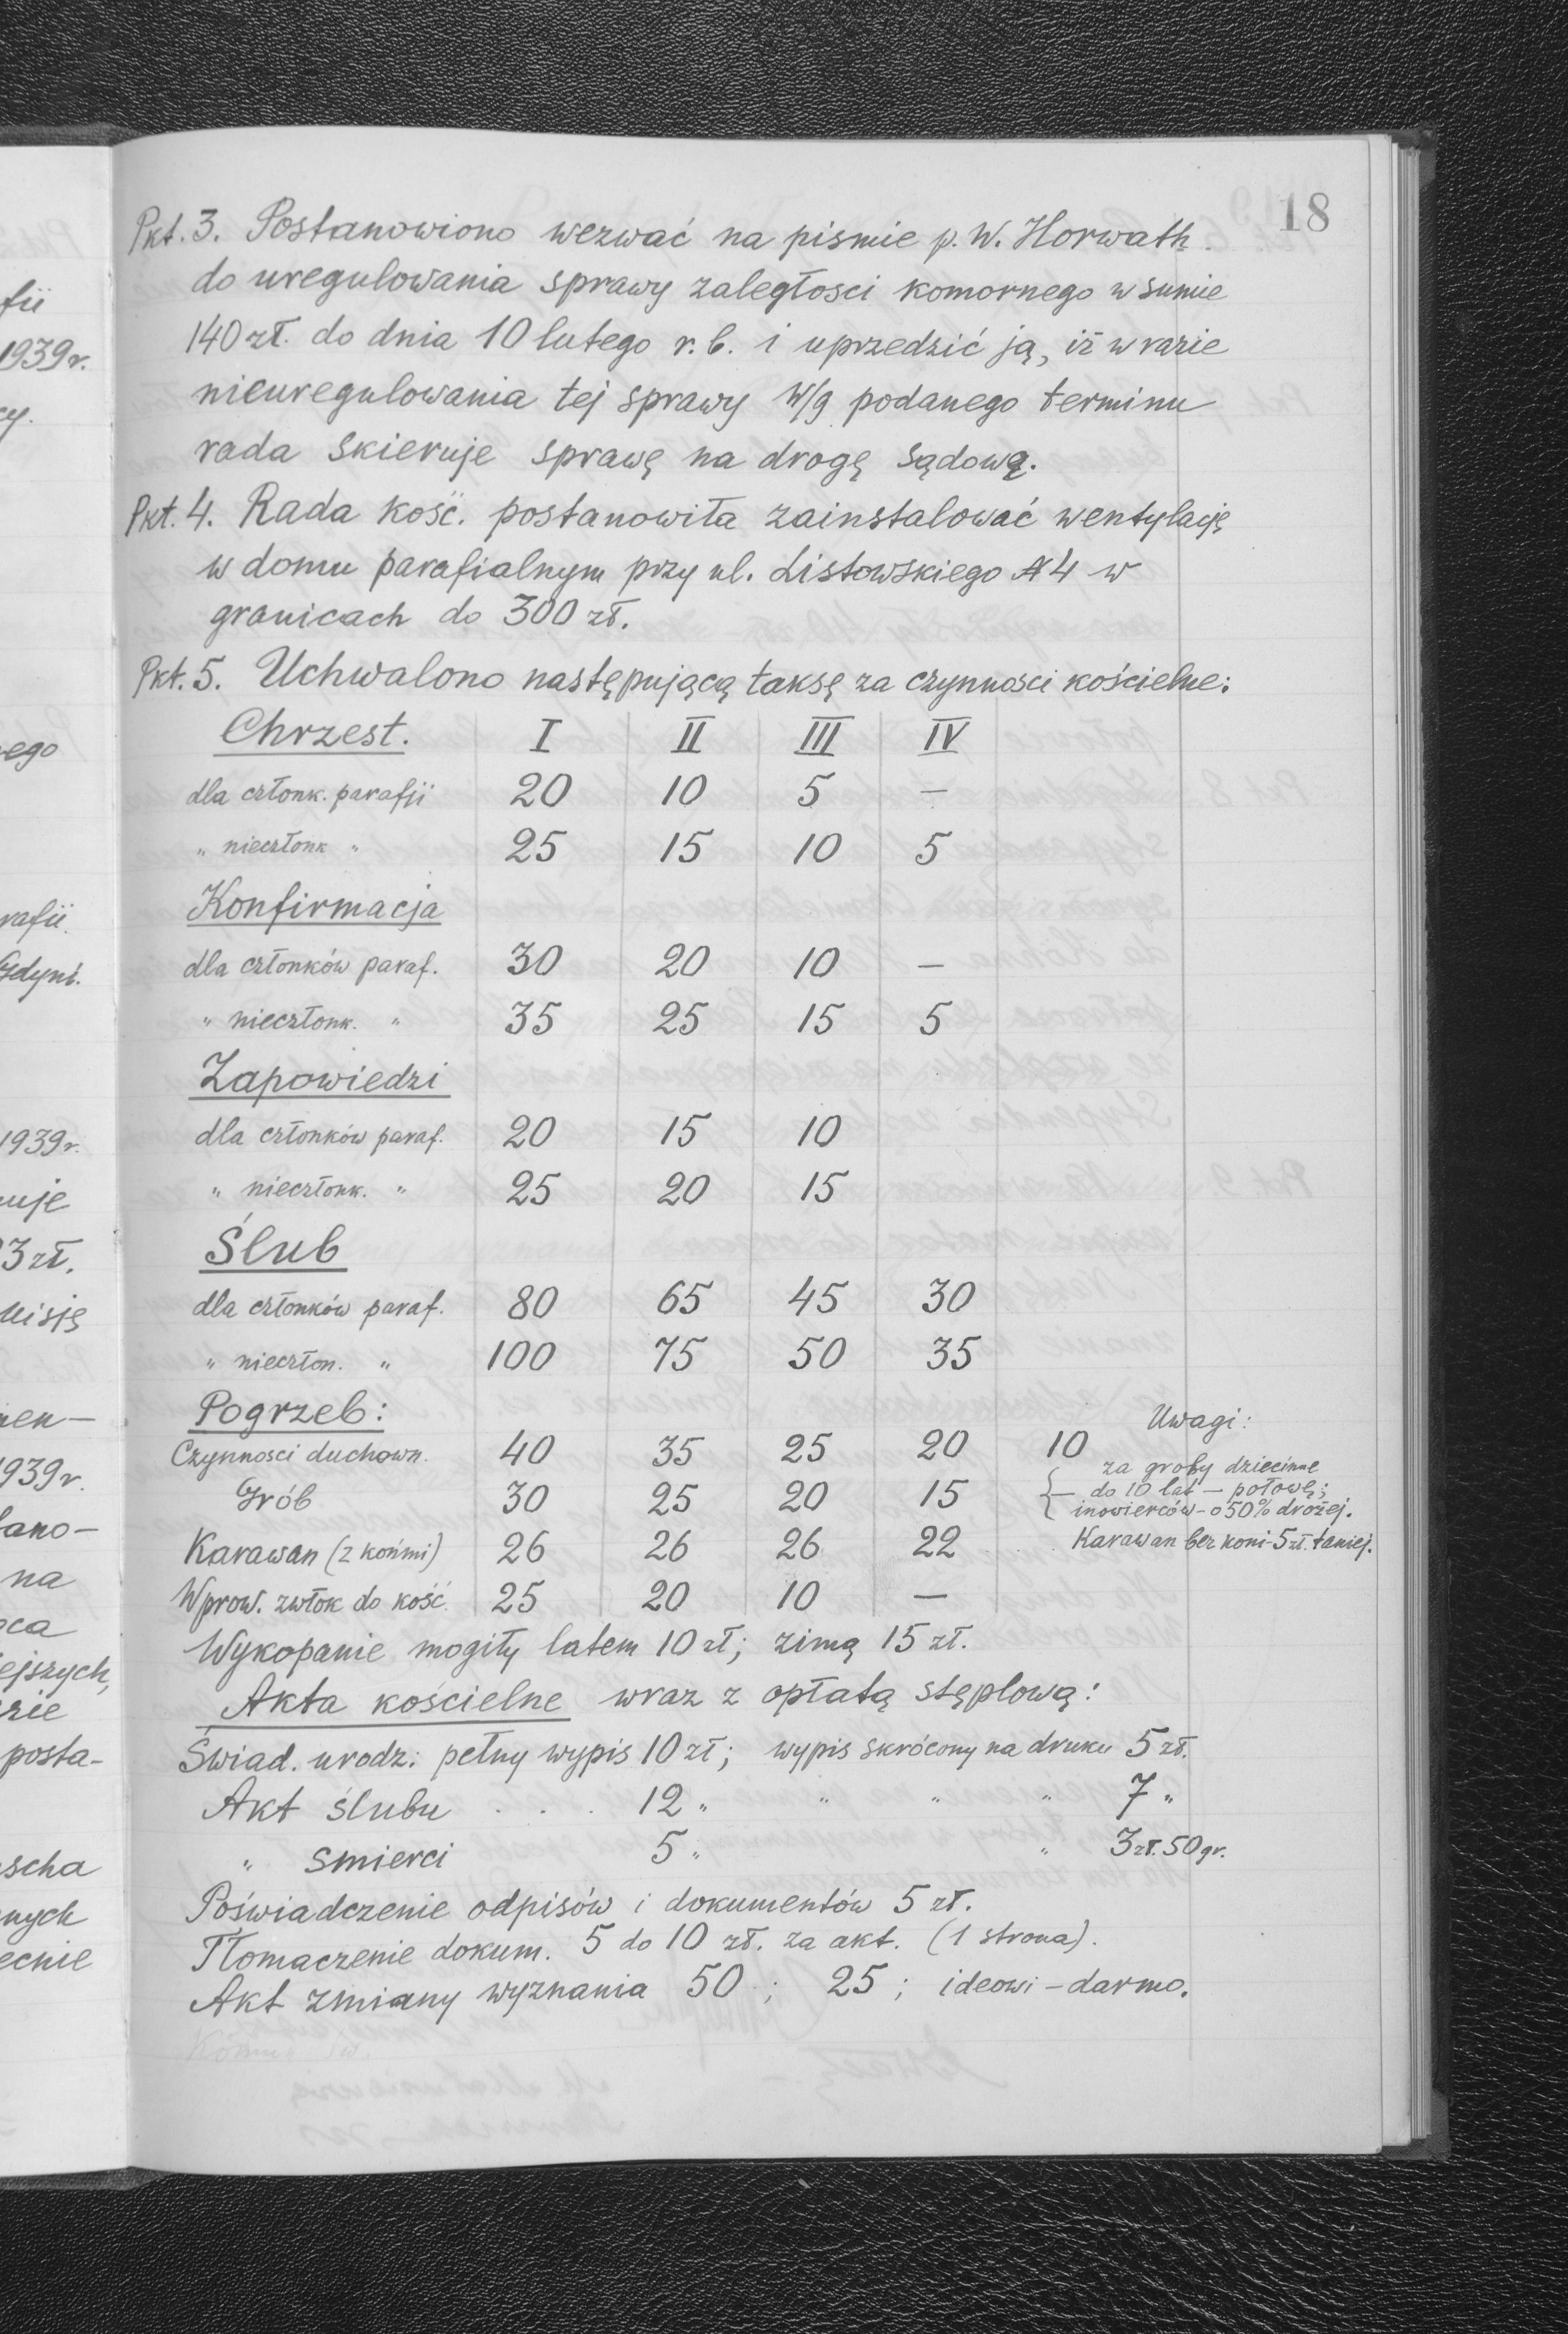 fii
1939r.
cy.
ego
rafii.
Gdyni.
1939r.
uje
3 zł.
misję
men—
1939r.
ano—
na
oca
ejszych,
zie
posta-
scha
nych
ecnie
18
Pkt. 3. Postanowiono wezwać na pismie p. W. Horwath
do uregulowania sprawy zaległosci komornego w sumie
140 zł. do dnia 10 lutego r.b. i uprzedzić ją, iż w razie
nieuregulowania tej sprawy W/g podanego terminu
rada skieruje sprawę na drogę sądową.
Pkt. 4. Rada kość. postanowiła zainstalować wentylację
w domu parafialnym przy ul. Listowskiego № 4 w
granicach do 300 zł.
Pkt. 5. Uchwalono następującą taksę za czynnosci kościelne:
Chrzest. I II III IV
dla członk. parafji 20 10 5 —
" niecztonk " 25 15 10 5
Konfirmacja
dla członków paraf. 30 20 10 —
" niecztonk. " 35 25 15 5
Zapowiedzi
dla członków paraf. 20 15 10
" niecztonk. " 25 20 15
Ślub
dla członków paraf. 80 65 45 30
" nieczton. " 100 75 50 35
Pogrzeb: Uwagi:
Czynnosci duchown. 40 35 25 20 10
Grób 30 25 20 15 { za groby dziecinne
— do 10 lat — połowę;
inowierców - o 50% drożej.
Karawan (z końmi) 26 26 26 22 Karawan bez koni - 5 zł. taniej.
Wprow. zwłok do kość. 25 20 10 —
Wykopanie mogiły latem 10 zł; zimą 15 zł.
Akta kościelne wraz z opłatą stęplową:
Świad. urodz: pełny wypis 10 zł; wypis skrócony na druku 5 zł.
Akt ślubu . . . 12 " " " " 7 "
" smierci 5 " " 3 zł. 50 gr.
Poświadczenie odpisów i dokumentów 5 zł.
Tłomaczenie dokum. 5 do 10 zł. za akt. (1 strona).
Akt zmiany wyznania 50 ; 25 ; ideowi - darmo.